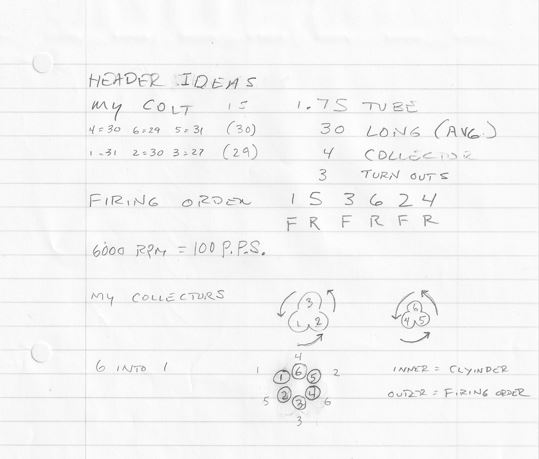 HEADER IDEAS
MY COLT IS 1.75 TUBE
4=30 6=29 5=31 (30) 30 LONG (AVG.)
1=31 2=30 3=27 (29) 4 COLLECTOR
3 TURN OUTS
FIRING ORDER 1 5 3 6 2 4
F R F R F R
6000 RPM = 100 P.P.S.
MY COLLECTORS 3 1 2 6 4 5
6 INTO 1
4
1 1 6 5 2
5 2 3 4 6
3
INNER = CLYINDER
OUTER = FIRING ORDER